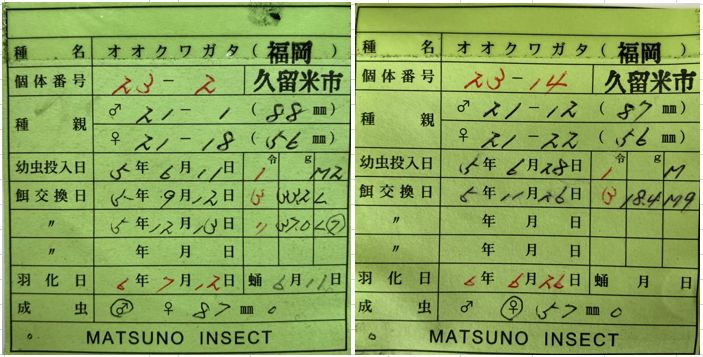 種 名 オオクワガタ(福岡
個体番号 23-2 久留米市
種 親 ♂ 21-1 (88 mm)
♀ 21-18 (56 mm)
令 g
幼虫投入日 5年6月11日 1 M2
餌交換日 5年9月12日 3 33.2 L
〃 5年12月13日 〃 37.0 L⑦
〃 年 月 日
羽化日 6年7月12日 蛹 6月11日
成 虫 ♂ ♀ 87 mm 0
MATSUNO INSECT
種 名 オオクワガタ(福岡
個体番号 23-14 久留米市
種 親 ♂ 21-12 (87 mm)
♀ 21-22 (56 mm)
令 g
幼虫投入日 5年6月28日 1 M
餌交換日 5年11月26日 3 18.4 M9
〃 年 月 日
〃 年 月 日
羽化日 6年6月26日 蛹 月 日
成 虫 ♂ ♀ 57 mm 0
MATSUNO INSECT